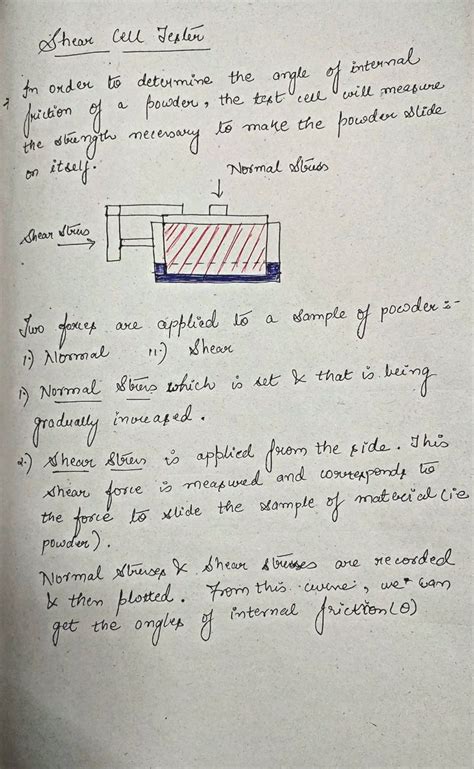 Shear Cell Tester
In order to determine the angle of internal
friction of a powder, the test cell will measure
the strength necessary to make the powder slide
on itself.
Normal Stress
Shear Stress
Two forces are applied to a sample of powder :-
1.) Normal 11.) Shear
1.) Normal Stress which is set & that is being
gradually increased.
2.) Shear Stress is applied from the side. This
shear force is measured and corresponds to
the force to slide the sample of material (ie
powder).
Normal stresses & shear stresses are recorded
& then plotted. From this curve, we can
get the angles of internal friction (θ)